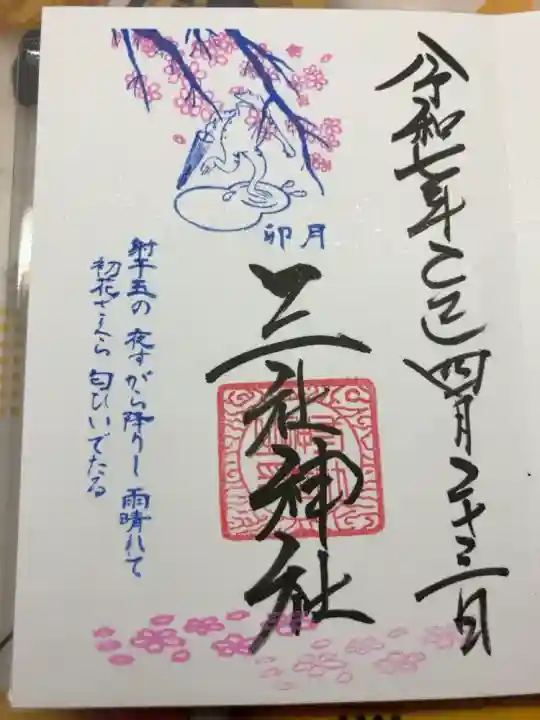 令和七年乙巳四月二十三日
三社神社
卯月
夜すがら降りし 雨晴れて
初花ざくら 匂ひいでたる